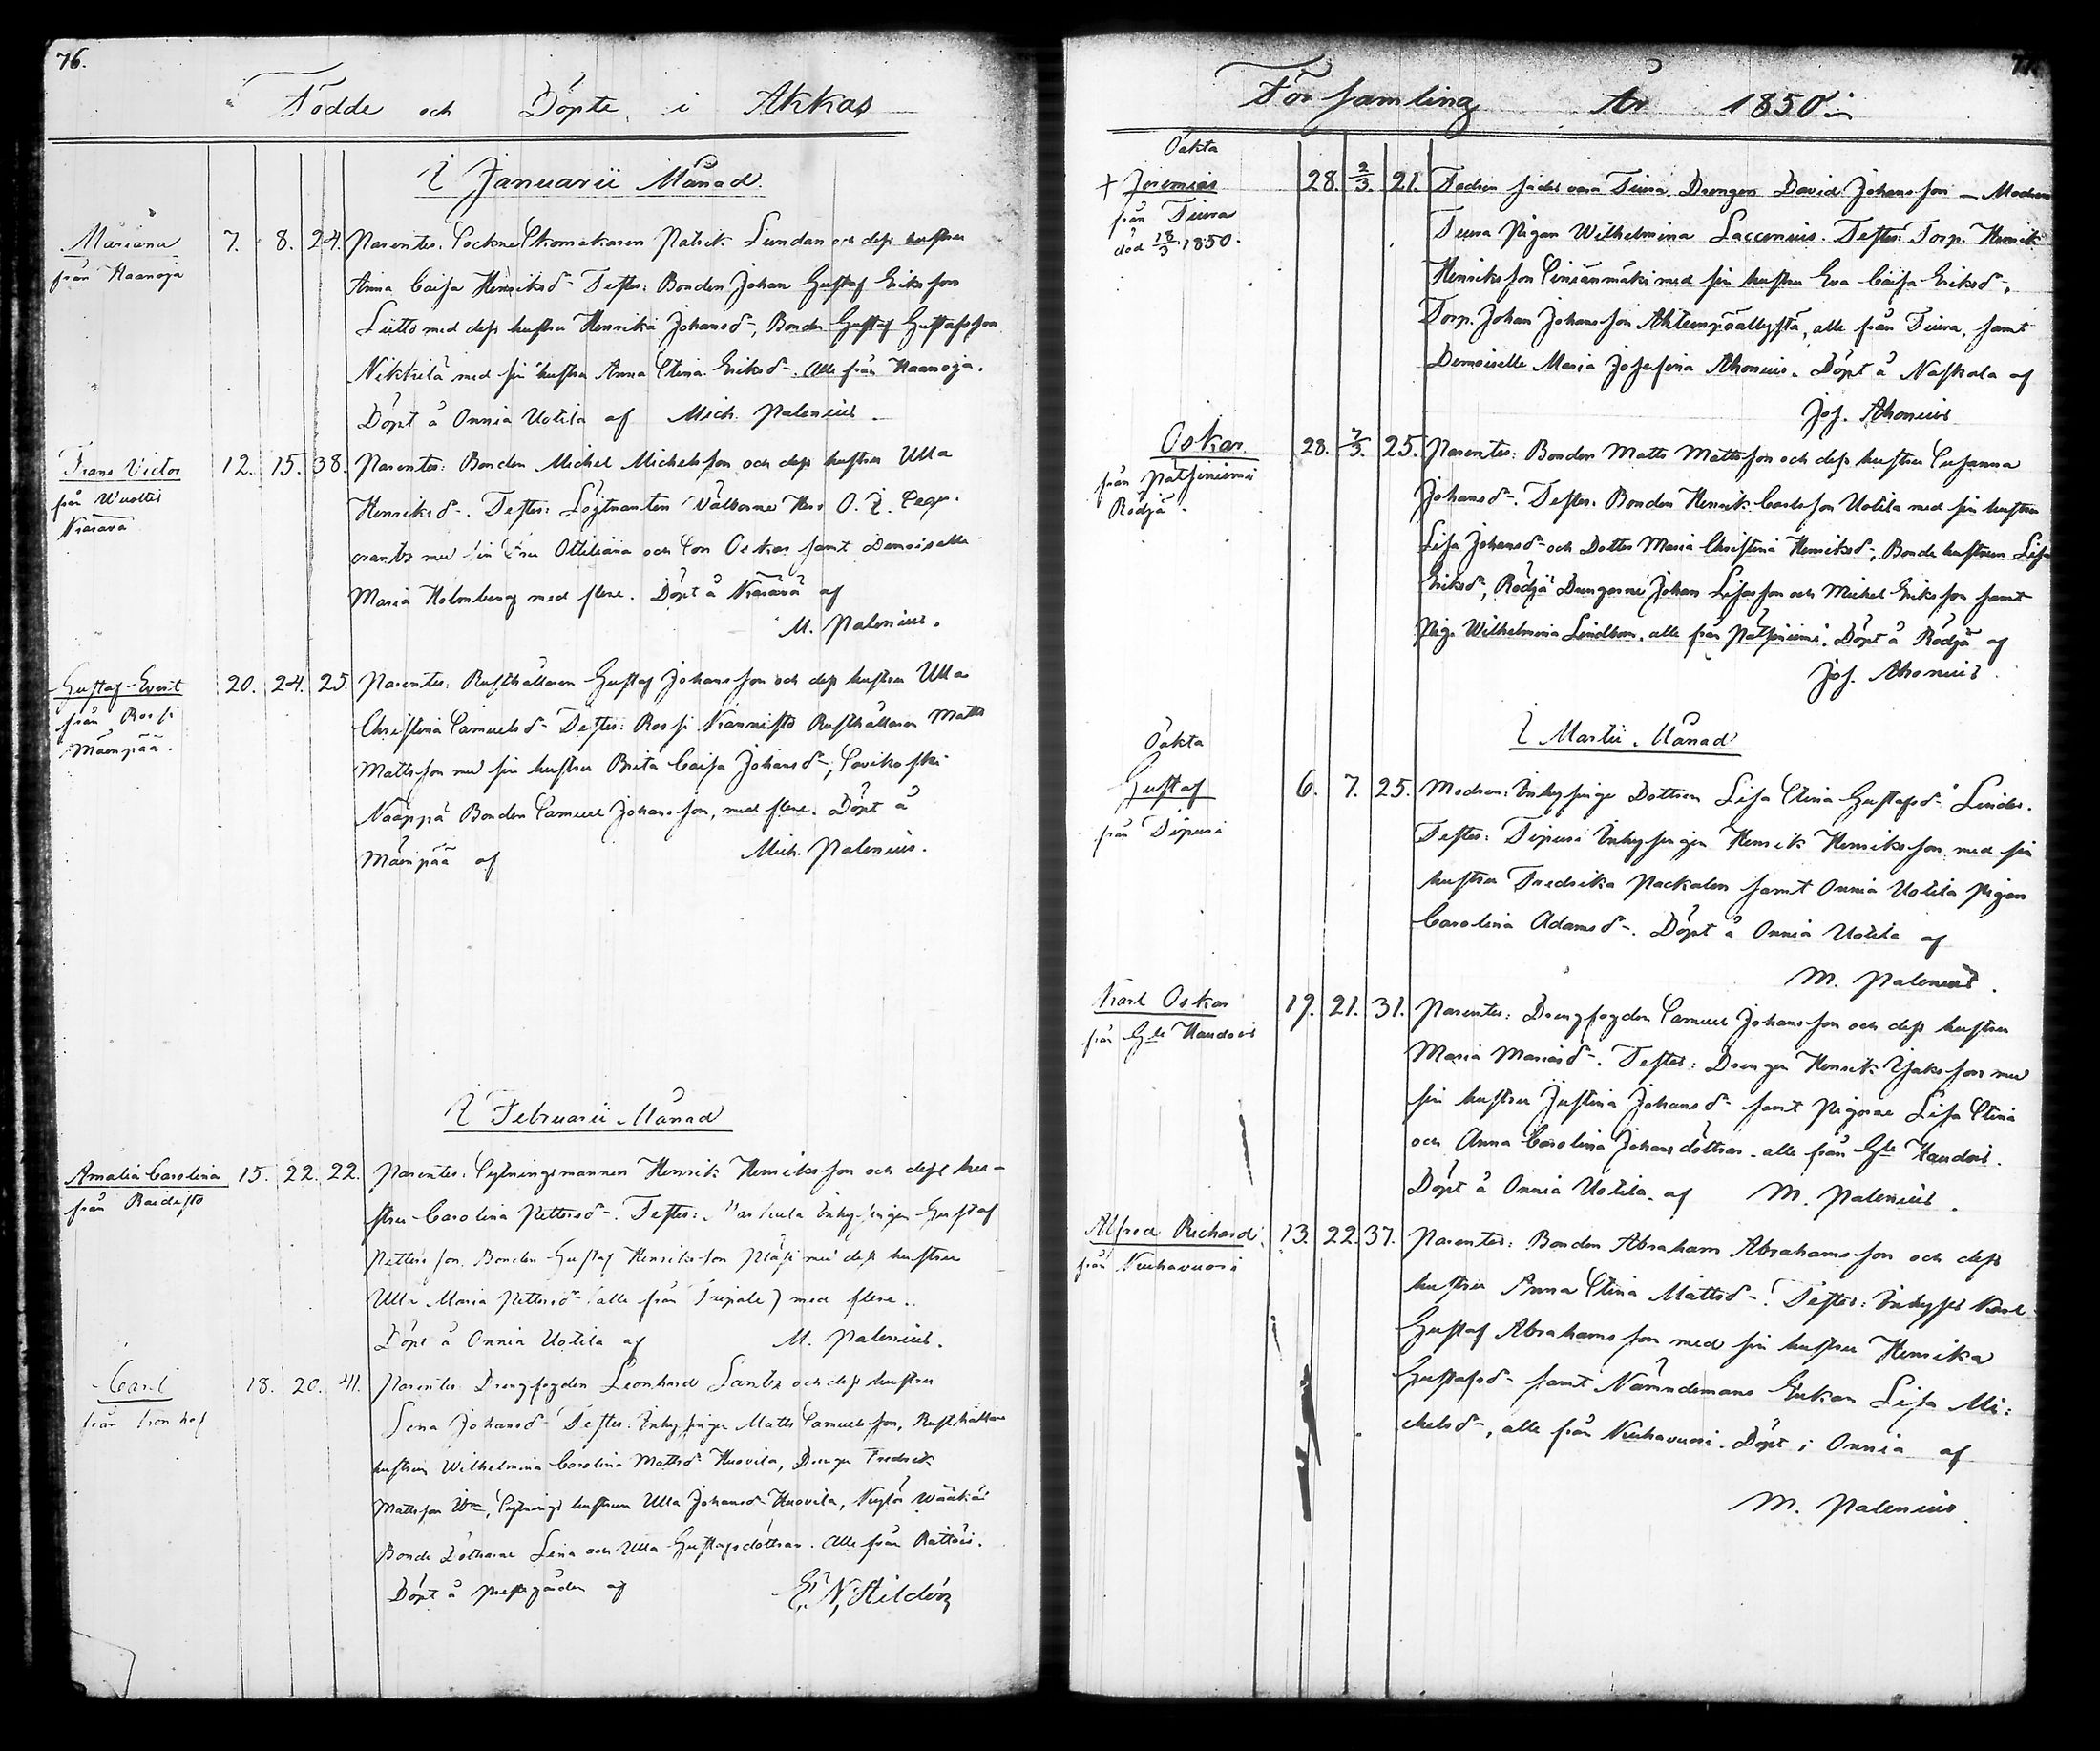 76.
Födde och Döpte i Akkas
I Januarii Månad.
Mariana
från Haanoja
7. 8. 24. Parentes: Sockne Skomakaren Patrik Lundan och dess hustru
Anna Caisa Henriksd- Testes: Bonden Johan Gustaf Eriksson
Liuttu med dess hustru Henrika Johansd-, Bonden Gustaf Gustafsson
Nikkilä med sin hustru Anna Stina Eriksd-. Alle från Haanoja.
Döpt å Onnia Uotila af Mich. Palenius.
Frans Victor
från
12. 15. 38. Parentes: Bonden Michel Michelsson och dess hustru Ulla
Henriksd-. Testes: Löjtnanten Välborne Herr O. Z.
med sin Fru Ottiliana och Son Oskar samt Demoiselle
Maria Holmberg med flere. Döpt å af
M. Palenius.
Gustaf Evert
från Rossi
Mäenpää.
20. 24. 25. Parentes: Rusthållaren Gustaf Johansson och dess hustru Ulla
Christina Samuelsd- Testes: Rossi Kannisto Rusthållaren Matts
Mattsson med sin hustru Brita Caisa Johansd-,
Näppä Bonden Samuel Johansson, med flere. Döpt å
Mäenpää af Mich. Palenius.
I Februarii Månad
Amalia Carolina
från Raidisto
15. 22. 22. Parentes: Sytningsmannen Henrik Henriksson och dess hu-
stru Carolina Pettersd-. Testes: Inhysingen Gustaf
Pettersson, Bonden Gustaf Henriksson med dess hustru
Ulla Maria Pettersd- (alle från ) med flere.
Döpt å Onnia Uotila af M. Palenius.
Carl
från
18. 20. 41. Parentes: Drengfogden Leonhard Lantz och dess hustru
Lena Johansd- Testes: Inhysinge Matts Samuelsson, Rusthållare
hustrun Wilhelmina Carolina Mattsd- Huovila, Dreng Fredrik
Mattsson Ibm, Sytnings hustrun Ulla Johansd- Huovila,
Bonde Döttrarne Lena och Ulla Gustafsdöttrar. Alle från Rättöis.
Döpt å prestgården af E. N. Hildén
Församling År 1850.
Oäkta
+ Jeremias
från Tiura
död 18/3 1850.
28. 2/3 21. Fadren sädes vara Tiura Drengen David Johansson — Modren
Tiura Pigan Wilhelmina Laccenius. Testes: Torp. Henrik
Henriksson med sin hustru Eva Caisa Eriksd-,
Torp. Johan Johansson , alle från Tiura, samt
Demoiselle Maria Josefina Ahonius. Döpt å Naskala af
Jos. Ahonius
Oskar
från Patsiniemi
Rödjä.
28. 7/3. 25. Parentes: Bonden Matts Mattsson och dess hustru Susanna
Johansd-. Testes: Bonden Henrik Carlsson Uotila med sin hustru
Lisa Johansd- och Dotter Maria Christina Henriksd-, Bonde hustrun Lisa
Eriksd-, Rödjä Drengarne Johan och Michel Eriksson samt
Pig. Wilhelmina Lindbom, alle från Patsiniemi. Döpt å Rödjä af
Jos. Ahonius
I Martii Månad
Oäkta
Gustaf
från Tipuri
6. 7. 25. Modren: Inhysinge Dottren Lisa Stina Gustafsd- Linder.
Testes: Tipuri Inhysingen Henrik Henriksson med sin
hustru Fredrika Packalen samt Onnia Uotila Pigan
Carolina Adamsd-. Döpt å Onnia Uotila af
M. Palenius.
Karl Oskar
från Gle Haudois
19. 21. 31. Parentes: Drengfogden Samuel Johansson och dess hustru
Maria . Testes: Drengen Henrik Isaksson med
sin hustru Justina Johansd- samt Pigorne Lisa Stina
och Anna Carolina Johansdöttrar. alle från Gle Haudois.
Döpt å Onnia Uotila. af M. Palenius.
Alfred Richard
från Neuhavuori
13. 22. 37. Parentes: Bonden Abraham Abrahamsson och dess
hustru Anna Stina Mattsd-. Testes: Inhyses Karl
Gustaf Abrahamsson med sin hustru Henrika
Gustafsd- samt Nämndemans Enkan Lisa Mi:
chelsd-, alle från Neuhavuori. Döpt i Onnia af
M. Palenius.